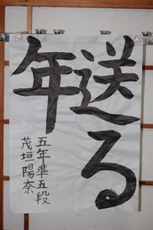 送る
年
五年準五段
茂垣陽奈